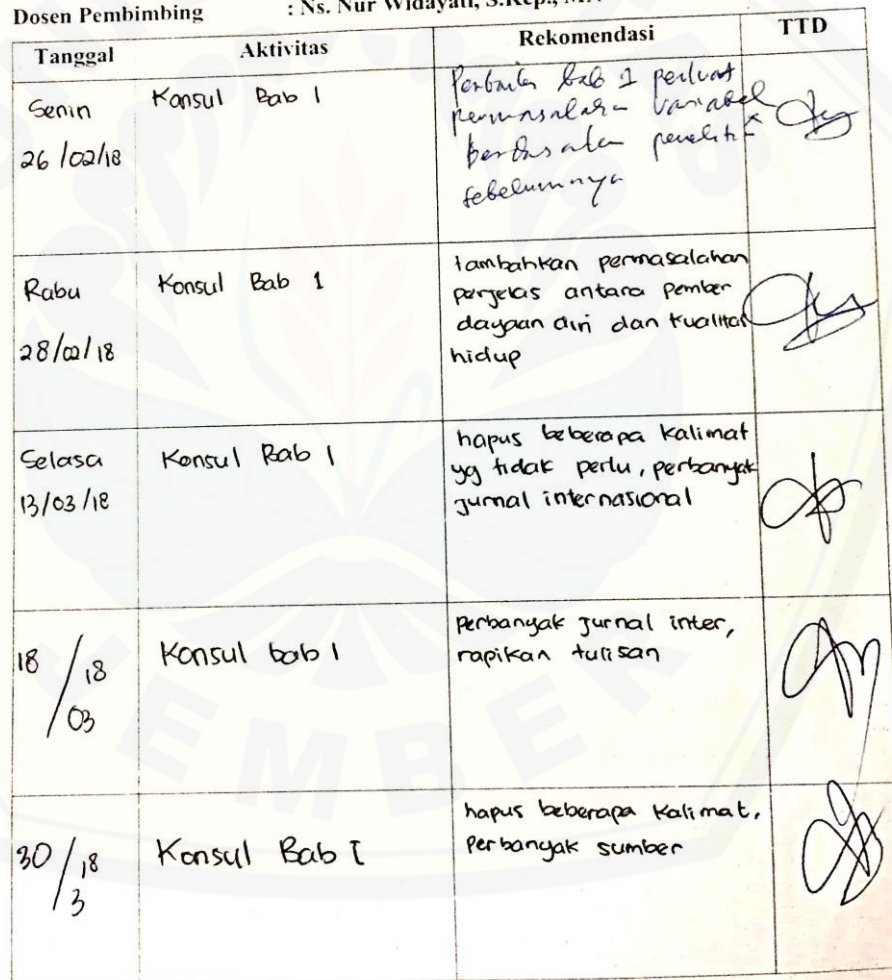 Dosen Pembimbing : Ns. Nur Widayati, S.Kep., M
Tanggal Aktivitas Rekomendasi TTD
Senin
26/02/18
Konsul Bab 1
bab 1 perluas
permasalahan variabel
sebelumnya
Rabu
28/02/18
Konsul Bab 1
tambahkan permasalahan
perjelas antara pember
dayaan diri dan kualitas
hidup
Selasa
13/03/18
Konsul Bab 1
hapus beberapa kalimat
yg tidak perlu, perbanyak
jurnal internasional
18/18
03
Konsul bab 1
perbanyak jurnal inter,
rapikan tulisan
30/18
3
Konsul Bab I
hapus beberapa kalimat,
perbanyak sumber
EMBER